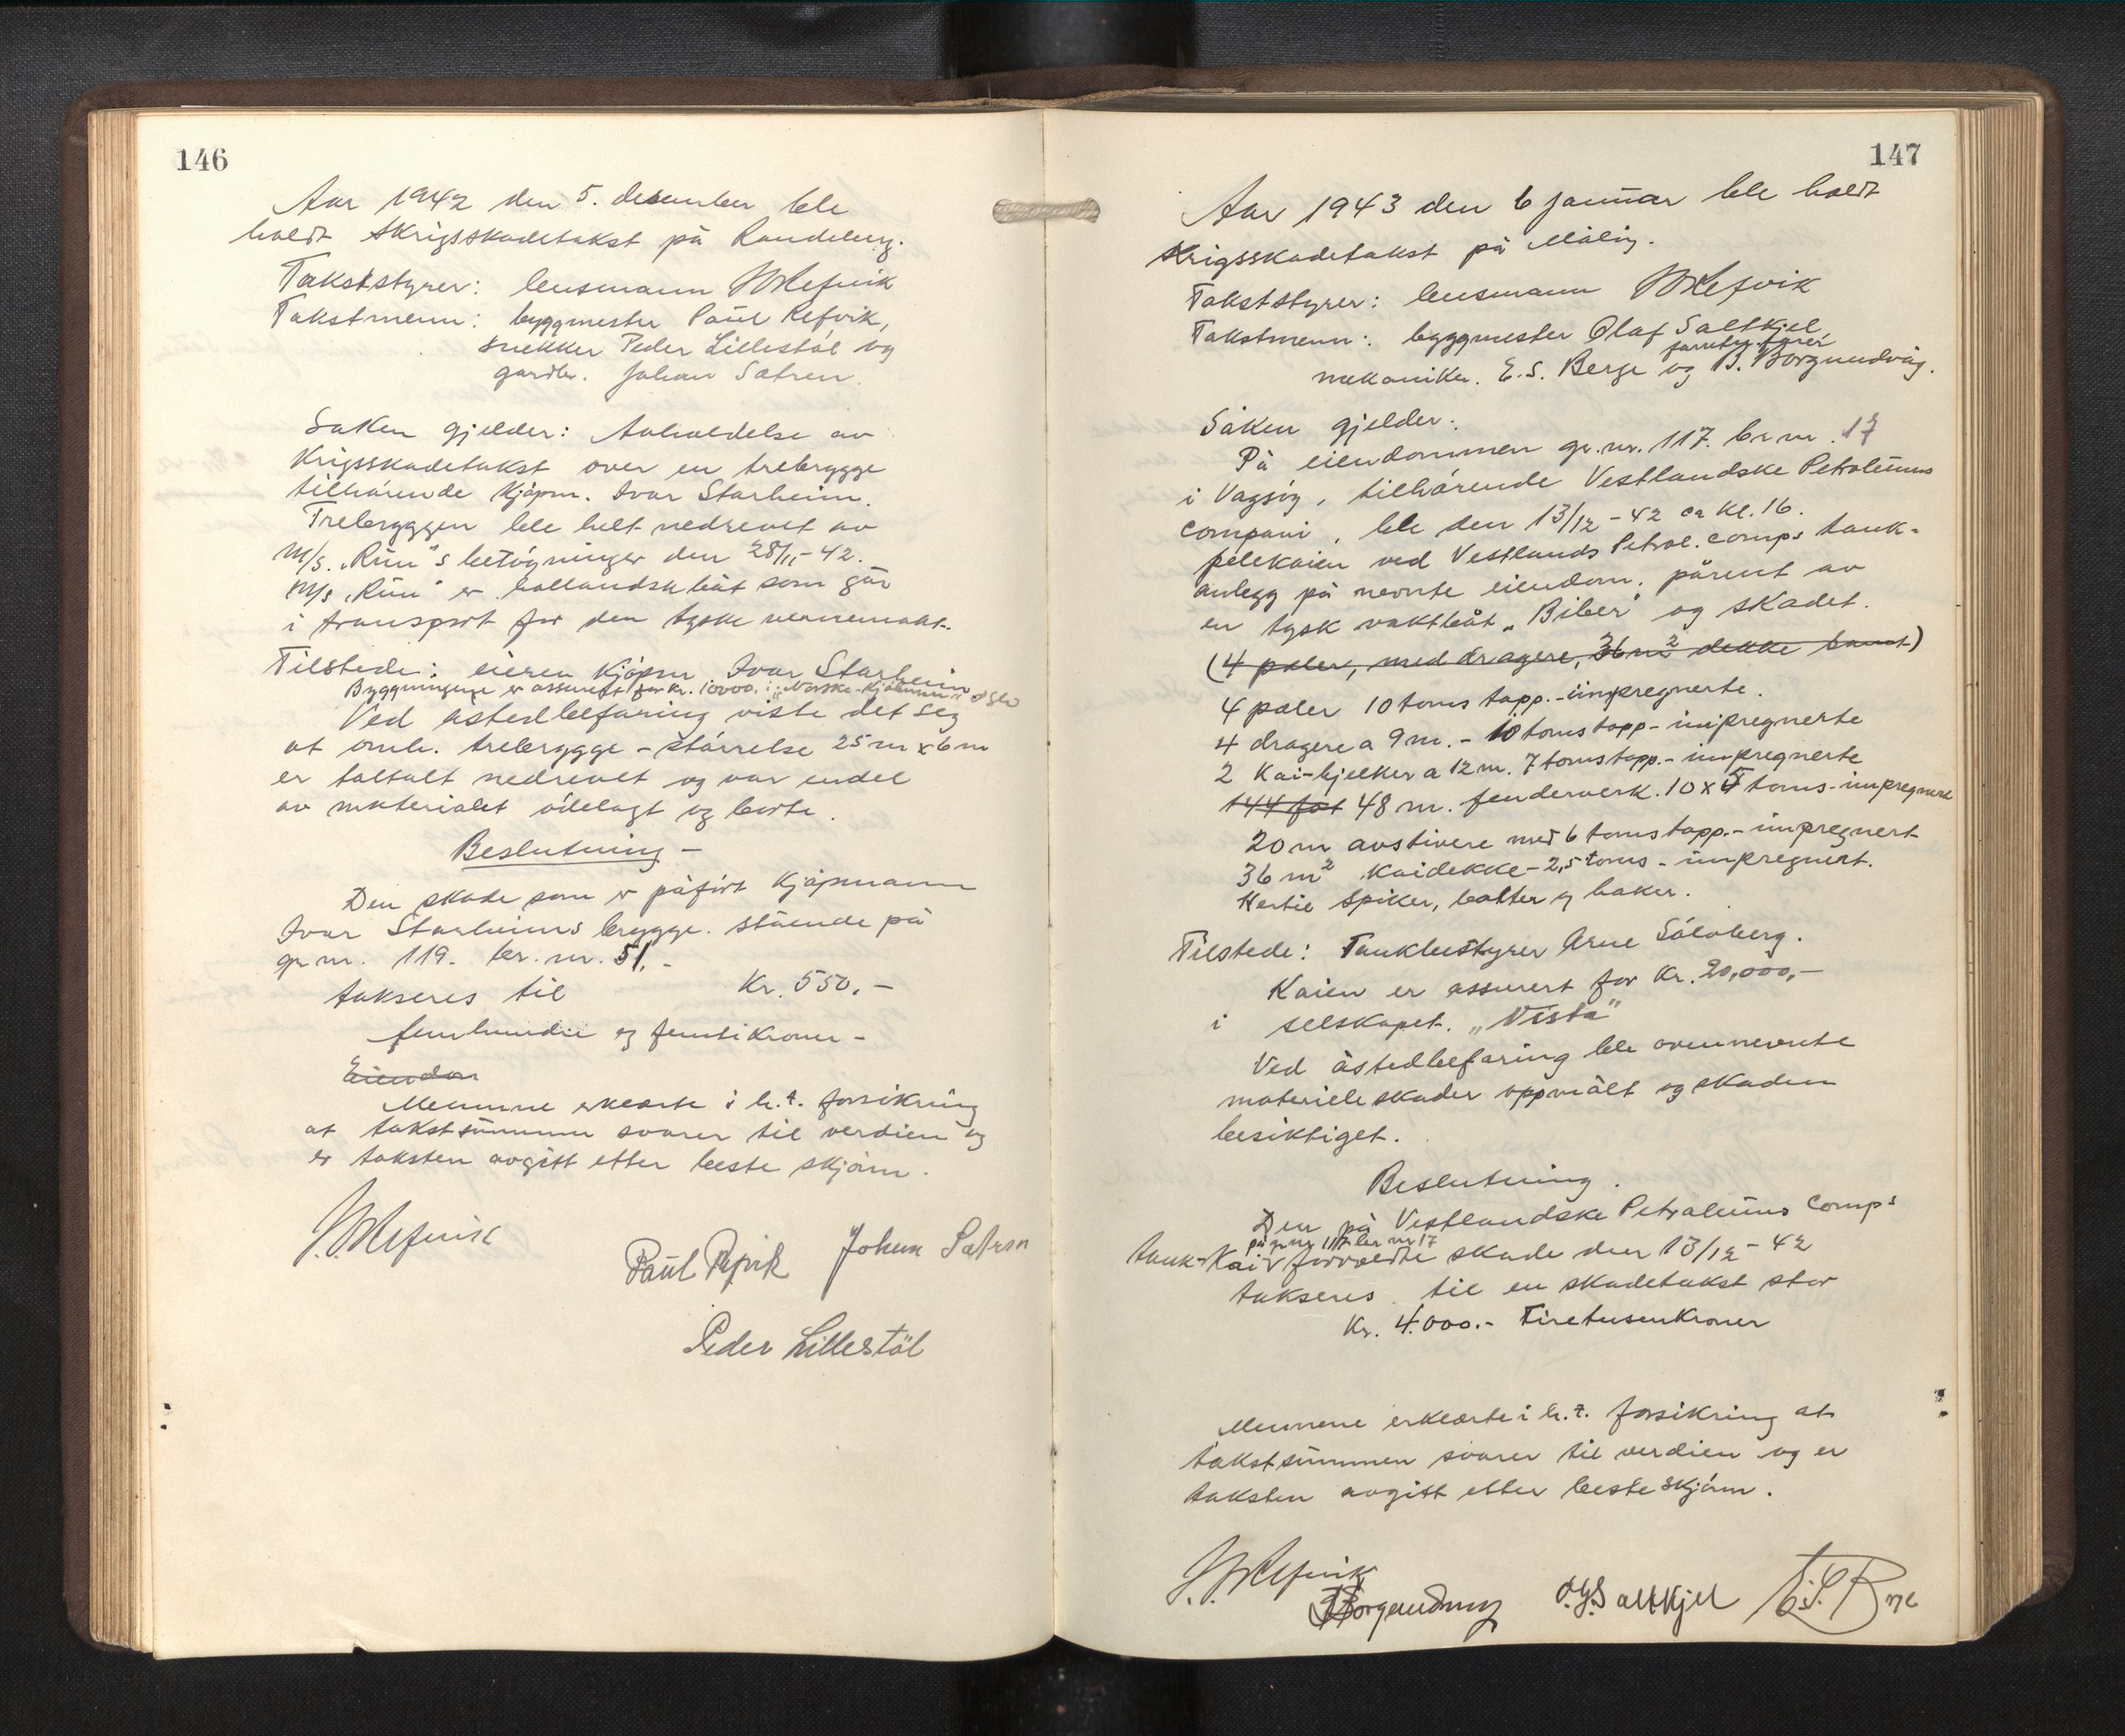 146
Aar 1942 den 5. desember ble
holdt krigsskadetakst på Raudeberg.
Takststyrer: lensmann Refvik
Takstmenn: byggmester Paul Refvik,
snekker Peder Lillestøl og
gardbr. Johan Sætren.
Saken gjelder: Avholdelse av
Krigsskadetakst over en trebrygge
tilhørende Kjøpm. Ivar Starheim.
Trebryggen ble helt nedrevet av
M/s. "Rün"s betøgninger den 28/11-42.
M/s "Rün" er hollandsk båt som går
i transport for den tyske vernemakt.
Tilstede: eieren Kjøpm Ivar Starheim
Byggningene er assurert for kr. 10000. i "Norske Kjøbmenn" Oslo
Ved åstedbefaring viste det seg
at omh. trebrygge - størrelse 25 m x 6 m
er taltalt nedrevet og var endel
av materialet ødelagt og borte.
Beslutning -
Den skade som er påført Kjøpmann
Ivar Starheims brygge. stående på
gr. nr. 119. br. nr. 51.-
takseres til Kr. 550,-
femhundre og femtikroner -
Eiendom
Mennene erklærte i h.t. forsikring
at takstsummen svarer til verdien og
er taksten avgitt etter beste skjønn.
Refvik
Paul Refvik Johan Sætren
Peder Lillestøl
147
Aar 1943 den 6 januar ble holdt
Krigsskadetakst på Måløy.
Takststyrer: lensmann Refvik
Takstmenn: byggmester Olaf Saltkjel,
mekaniker. E.S. Berge og B. Borgundvåg.
Saken gjelder:
På eiendommen gr. nr. 117. br nr. 17
i Vågsøy, tilhørende Vestlandske Petroleums
Compani, ble den 13/12-42 ca kl. 16.
pelekaien ved Vestlands Petrol. Comps tank-
anlegg på nevnte eiendom. pårent av
en tysk vaktbåt "Biber" og skadet.
(4 paler, med dragere, 36 m² dekke samt)
4 paler 10 toms topp.-impregnerte.
4 dragere a 9 m. - 10 toms topp - impregnerte
2 Kai-bjelker a 12 m. 7 toms topp. - impregnerte
144 fot 48 m. fenderverk. 10 x 5 toms - impregnert
20 m avstivere med 6 toms topp. - impregnert
36 m² Kaidekke - 2,5 toms - impregnert.
Hertil spiker, bolter og haker.
Tilstede: Tankbestyrer Arne Sölvberg.
Kaien er assurert for kr. 20,000,-
i selskapet. "Vesta"
Ved åstedbefaring ble ovennevnte
materielle skader oppmålt og skaden
besiktiget.
Beslutning.
Den på Vestlandske Petroleums Comp's
på gr nr 117 br nr 17
tank-Kai forvoldte skade den 13/12-42
takseres til en skadetakst stor
Kr. 4.000.- Firetusenkroner
Mennene erklærte i h.t. forsikring at
takstsummen svarer til verdien og er
taksten avgitt etter beste skjønn.
Refvik
B Borgundvåg O. Saltkjel E.S. Berge